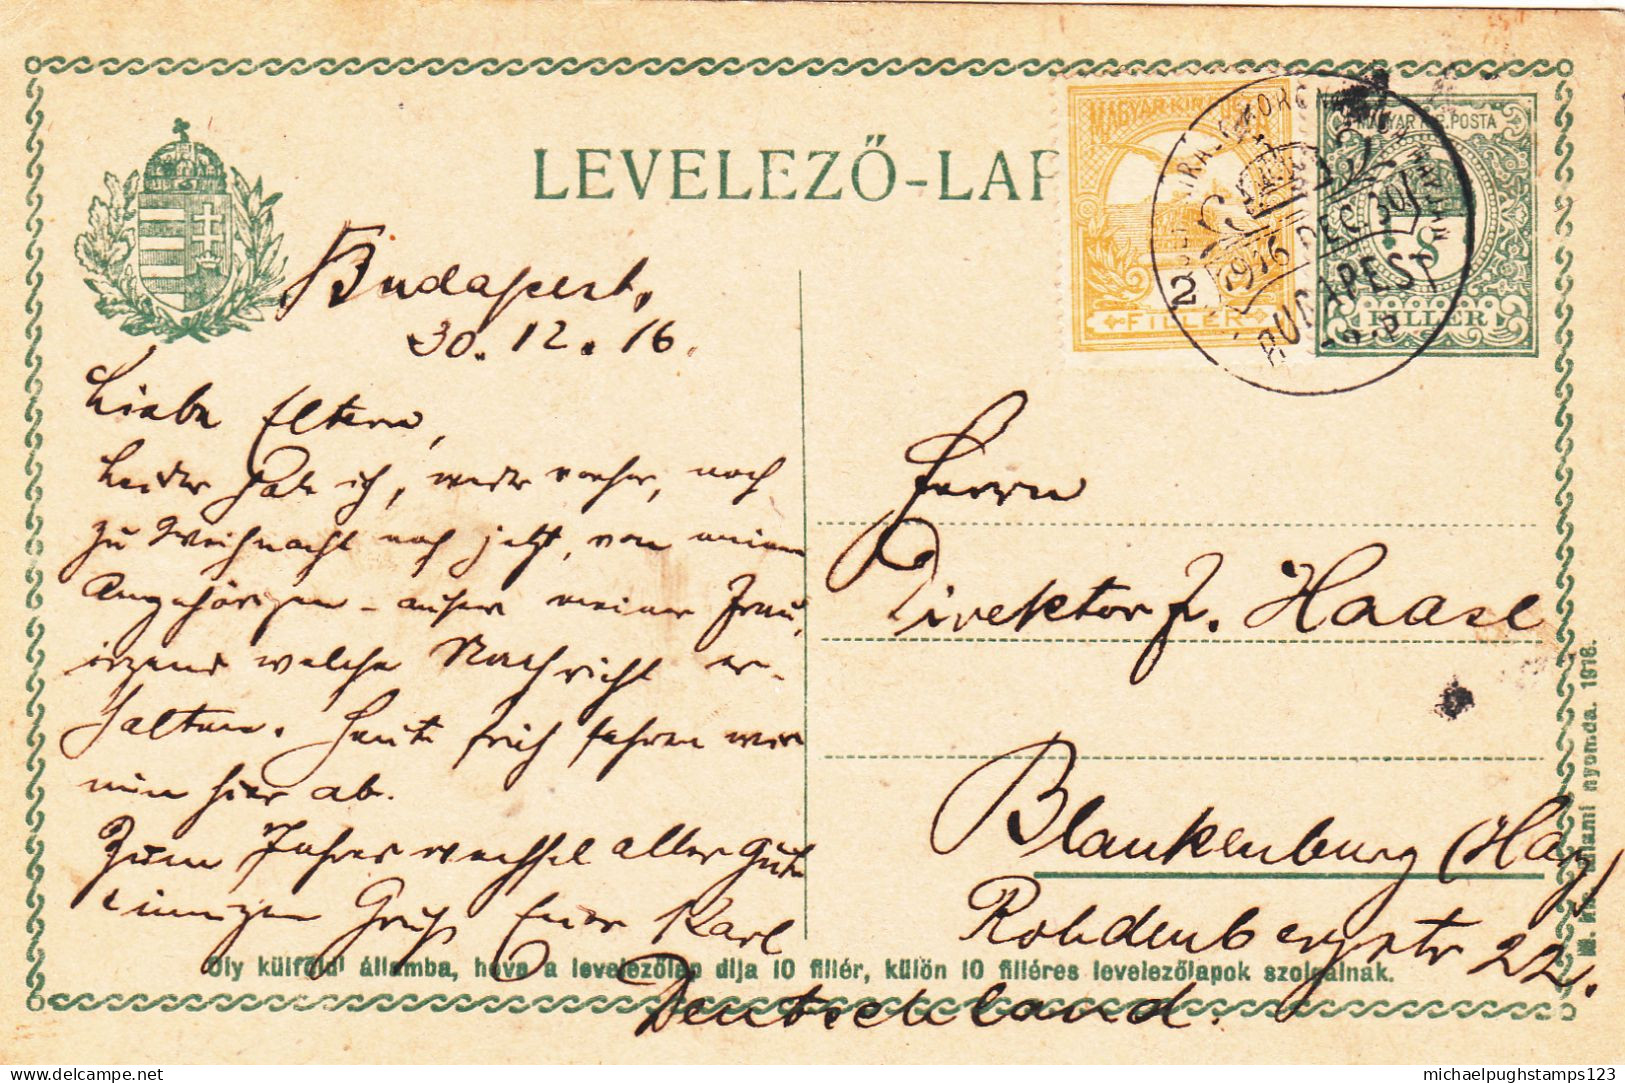 LEVELEZŐ-LAP
MAGYAR KIR. POSTA
2
FILLÉR
MAGYAR KIR. POSTA
8
FILLÉR
1916 DEC. 30
BUDAPEST
Budapest,
30.12.16.
Liebe Eltern,
Leider habe ich, weder vorher, noch
zu Weihnacht noch jetzt, von meinen
Angehörigen - außer meiner Frau,
irgend welche Nachricht er-
halten. Heute früh fahren wir
nun hier ab.
Zum Jahreswechsel alles Gute
innigen Gruß Euer Karl
Herrn
Direktor F. Haase
Blankenburg (Harz)
Rohdenbergstr 22.
Deutschland.
Oly külföldi államba, hova a levelezőlap díja 10 fillér, külön 10 filléres levelezőlapok szolgálnak.
M. kir. állami nyomda. 1916.
michaelpughstamps123